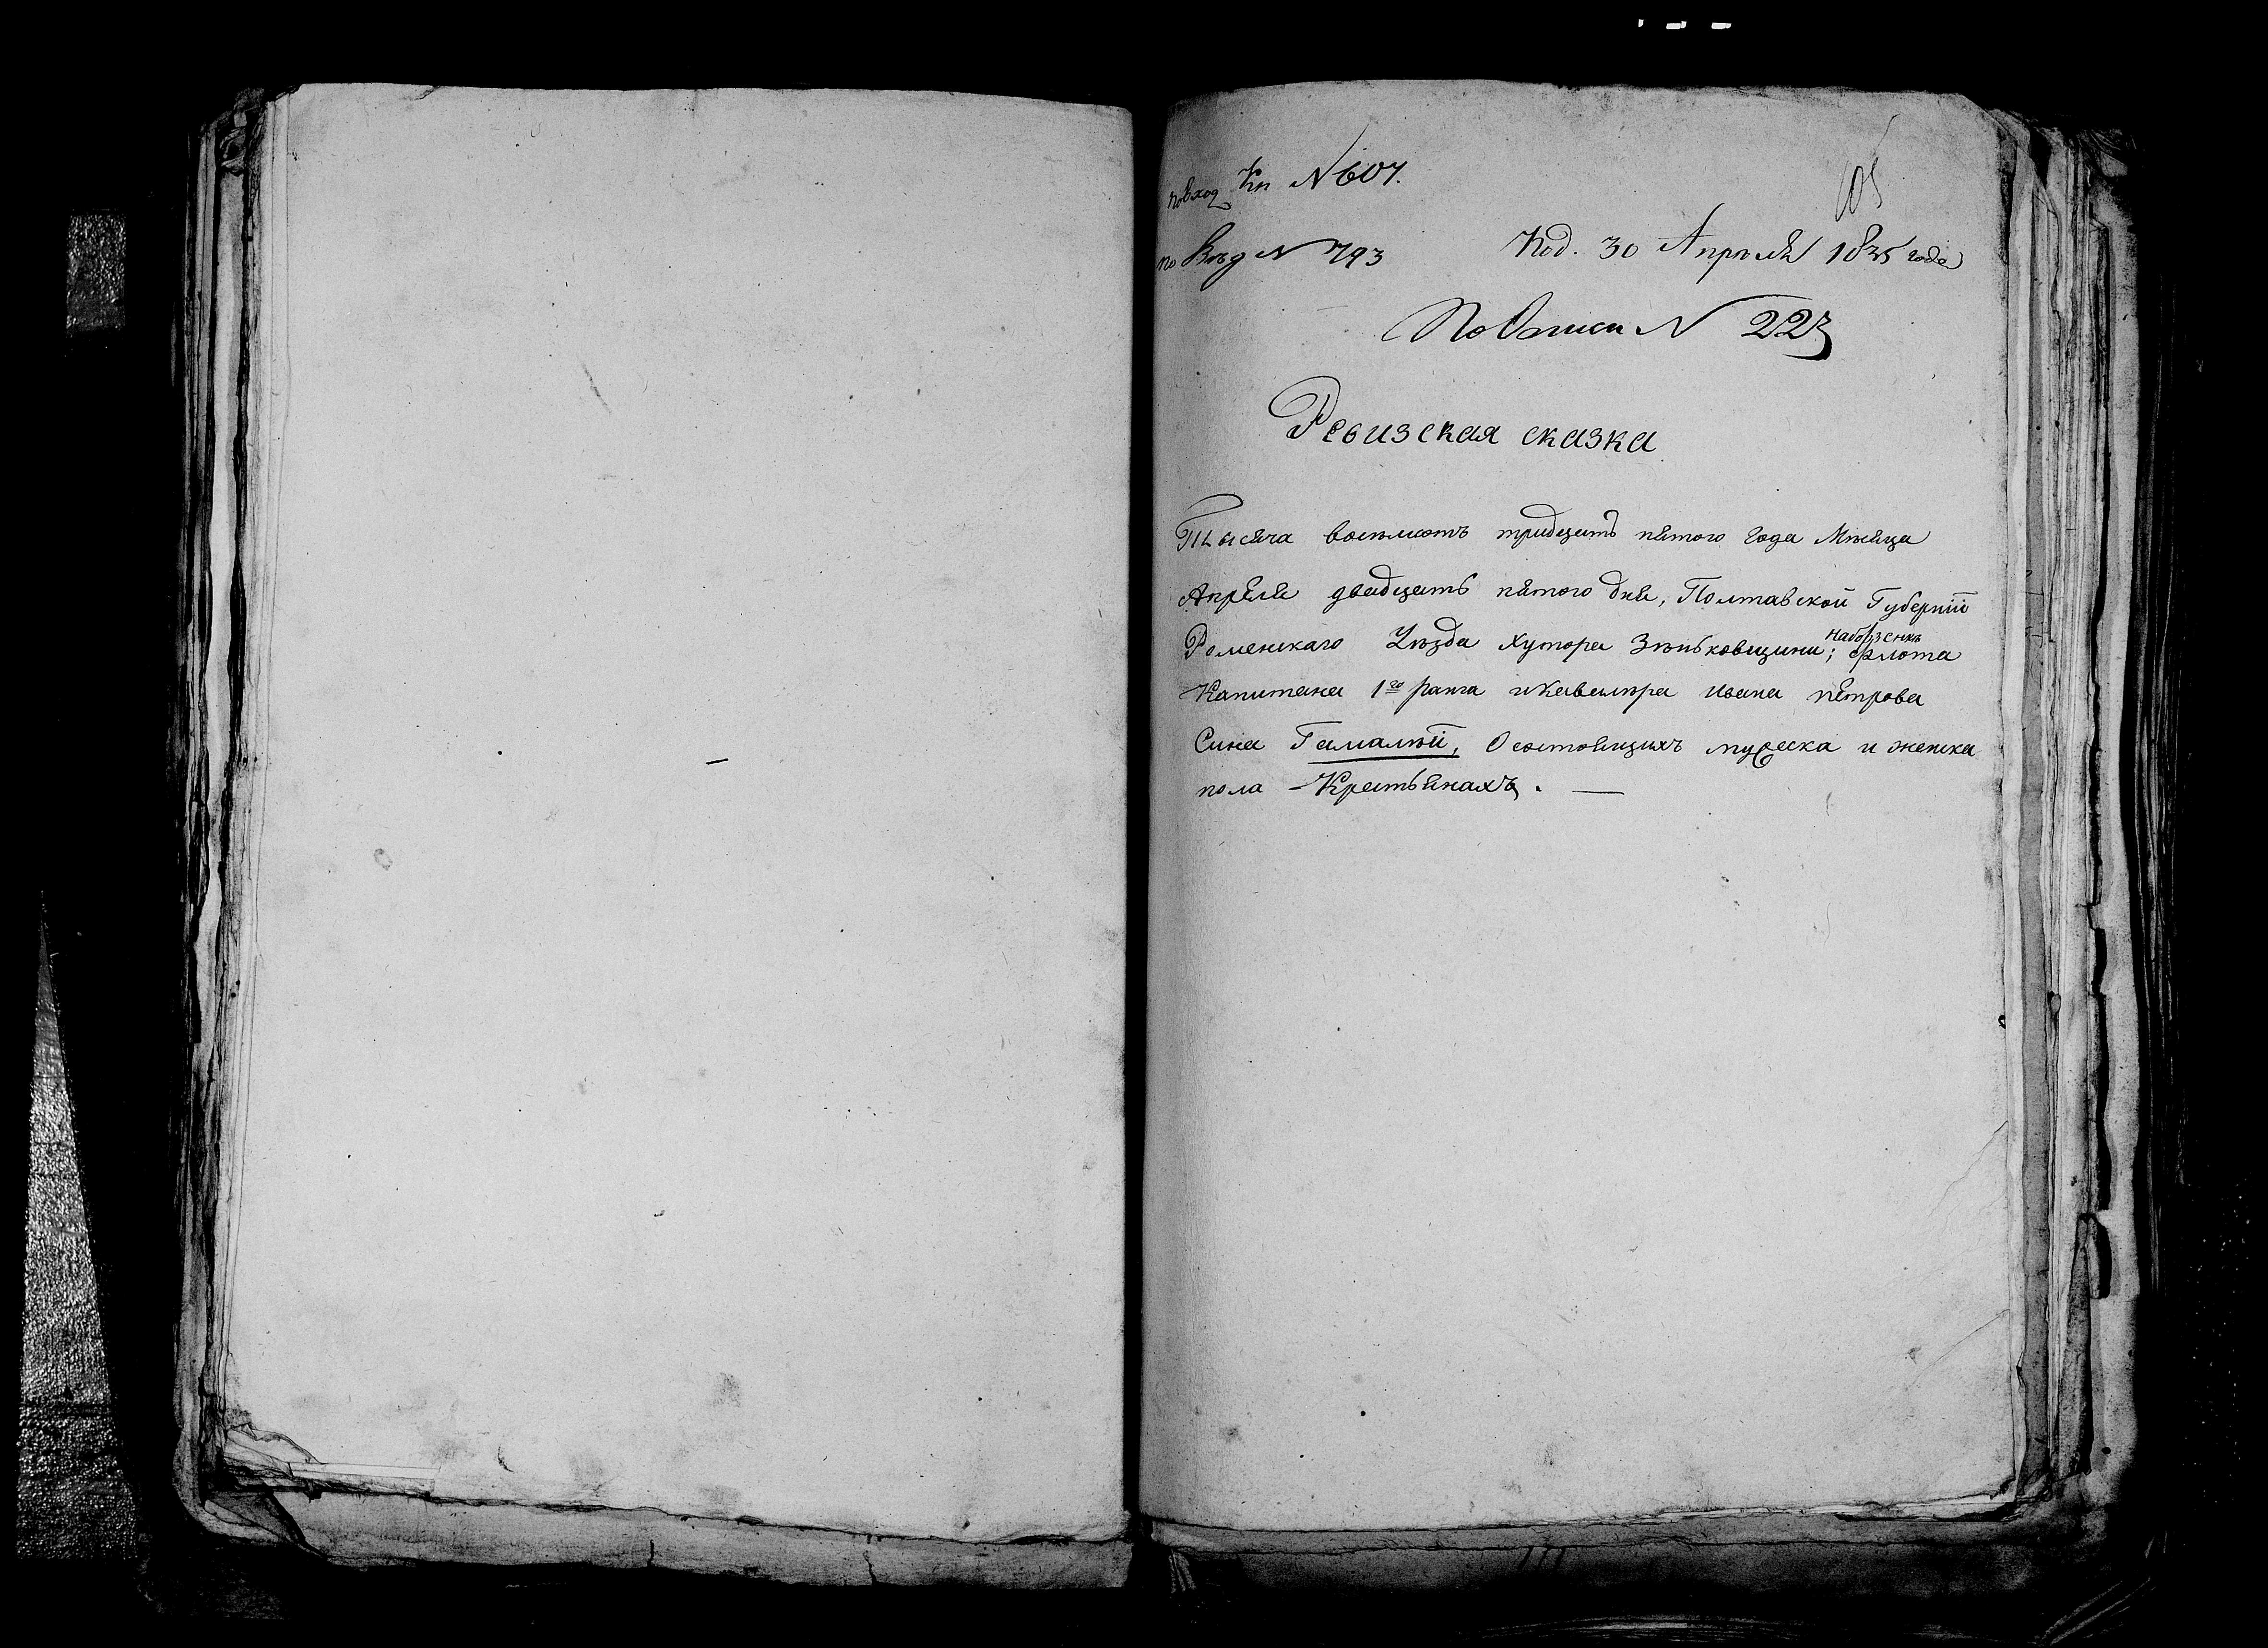 105
по вход Кн N 607.
по Вѣд N 793 Под. 30 Апрѣля 1835 года
По Описи N 223
Ревизская сказка
Тысяча восемсотъ тридцать пятого года Мѣсяца
Апреля двадцать пятого дня, Полтавской Губерніи
Роменскаго Уѣзда хутора Зѣньковщини; флота
Капитана 1го ранга и Кавалѣра ивана пѣтрова
Сина Гамалѣи, О состоящихъ мужеска и женска
пола Крестьянахъ. —